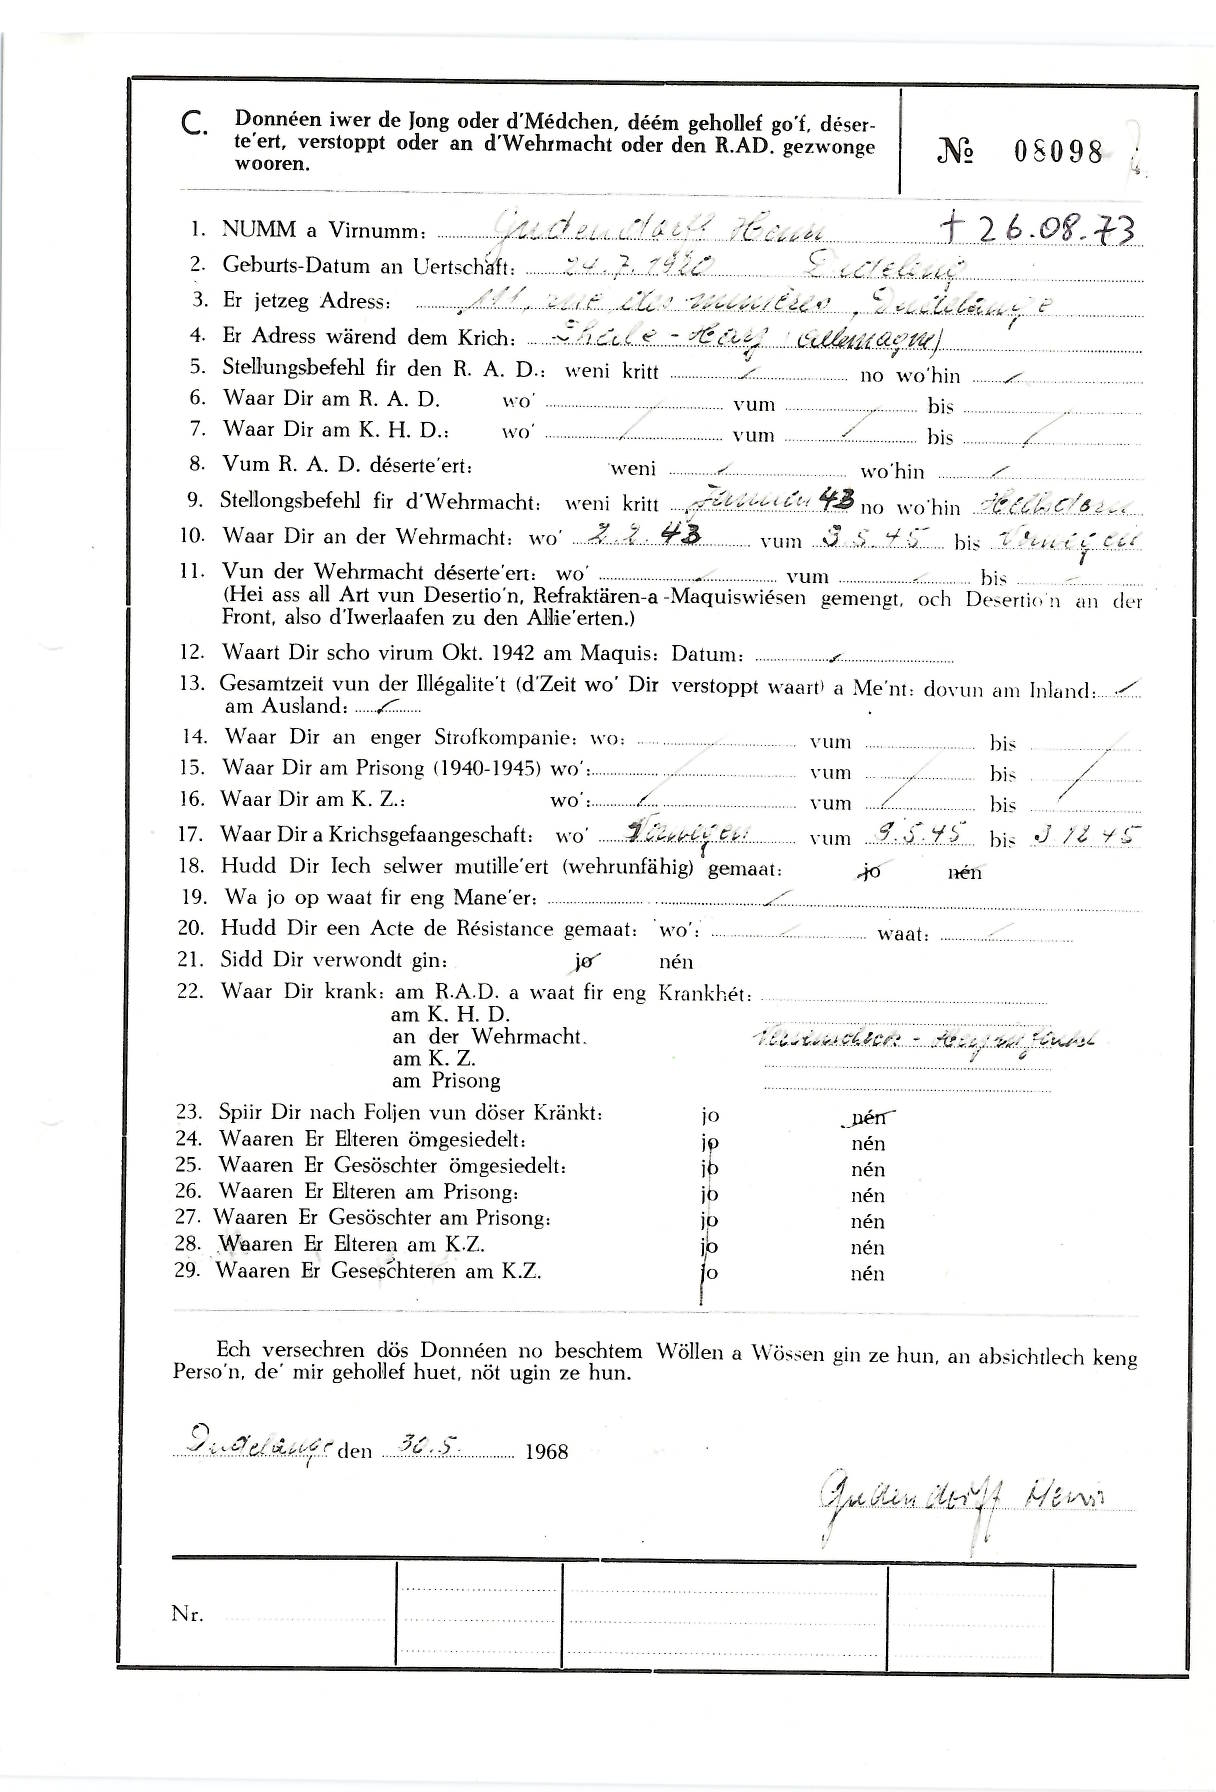 C. Donnéen iwer de Jong oder d'Médchen, déém gehollef go'f, déser-
te'ert, verstoppt oder an d'Wehrmacht oder den R.AD. gezwonge
wooren.
№ 08098
1. NUMM a Virnumm: Gudendorff Henri † 26.08.73
2. Geburts-Datum an Uertschaft: 24.7.1920 Dudeleng
3. Er jetzeg Adress: 111, rue des minières, Dudelange
4. Er Adress wärend dem Krich: Thale - Harz (Allemagne)
5. Stellungsbefehl fir den R. A. D.: weni kritt / no wo'hin /
6. Waar Dir am R. A. D. wo' / vum / bis /
7. Waar Dir am K. H. D.: wo' / vum / bis /
8. Vum R. A. D. déserte'ert: weni / wo'hin /
9. Stellongsbefehl fir d'Wehrmacht: weni kritt Januar 43 no wo'hin
10. Waar Dir an der Wehrmacht: wo' 2.2.43 vum 8.5.45 bis Norwegen
11. Vun der Wehrmacht déserte'ert: wo' / vum / bis /
(Hei ass all Art vun Desertio'n, Refraktären-a-Maquiswiésen gemengt, och Desertio'n an der
Front, also d'Iwerlaafen zu den Allie'erten.)
12. Waart Dir scho virum Okt. 1942 am Maquis: Datum: /
13. Gesamtzeit vun der Illégalite't (d'Zeit wo' Dir verstoppt waart) a Me'nt: dovun am Inland: /
am Ausland: /
14. Waar Dir an enger Strofkompanie: wo: / vum / bis /
15. Waar Dir am Prisong (1940-1945) wo': / vum / bis /
16. Waar Dir am K. Z.: wo': / vum / bis /
17. Waar Dir a Krichsgefaangeschaft: wo' Norwegen vum 9.5.45 bis 3 12 45
18. Hudd Dir Iech selwer mutille'ert (wehrunfähig) gemaat: jo nén
19. Wa jo op waat fir eng Mane'er: /
20. Hudd Dir een Acte de Résistance gemaat: wo': / waat: /
21. Sidd Dir verwondt gin: jo nén
22. Waar Dir krank: am R.A.D. a waat fir eng Krankhét:
am K. H. D.
an der Wehrmacht.
am K. Z.
am Prisong
23. Spiir Dir nach Foljen vun döser Kränkt: jo nén
24. Waaren Er Elteren ömgesiedelt: jo nén
25. Waaren Er Gesöschter ömgesiedelt: jo nén
26. Waaren Er Elteren am Prisong: jo nén
27. Waaren Er Gesöschter am Prisong: jo nén
28. Waaren Er Elteren am K.Z. jo nén
29. Waaren Er Geseschteren am K.Z. jo nén
Ech versechren dös Donnéen no beschtem Wöllen a Wössen gin ze hun, an absichtlech keng
Perso'n, de' mir gehollef huet, nöt ugin ze hun.
Dudelange den 30.5. 1968
Gudendorff Henri
Nr.